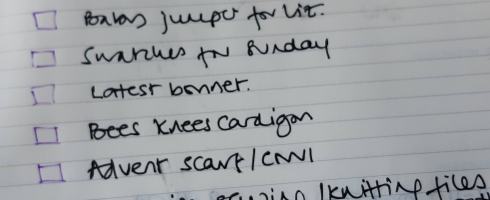 jumper for Liz.
Swatches for Sunday
Latest bonnet.
Bees Knees Cardigan
Advent scarf/cowl
/knitting files